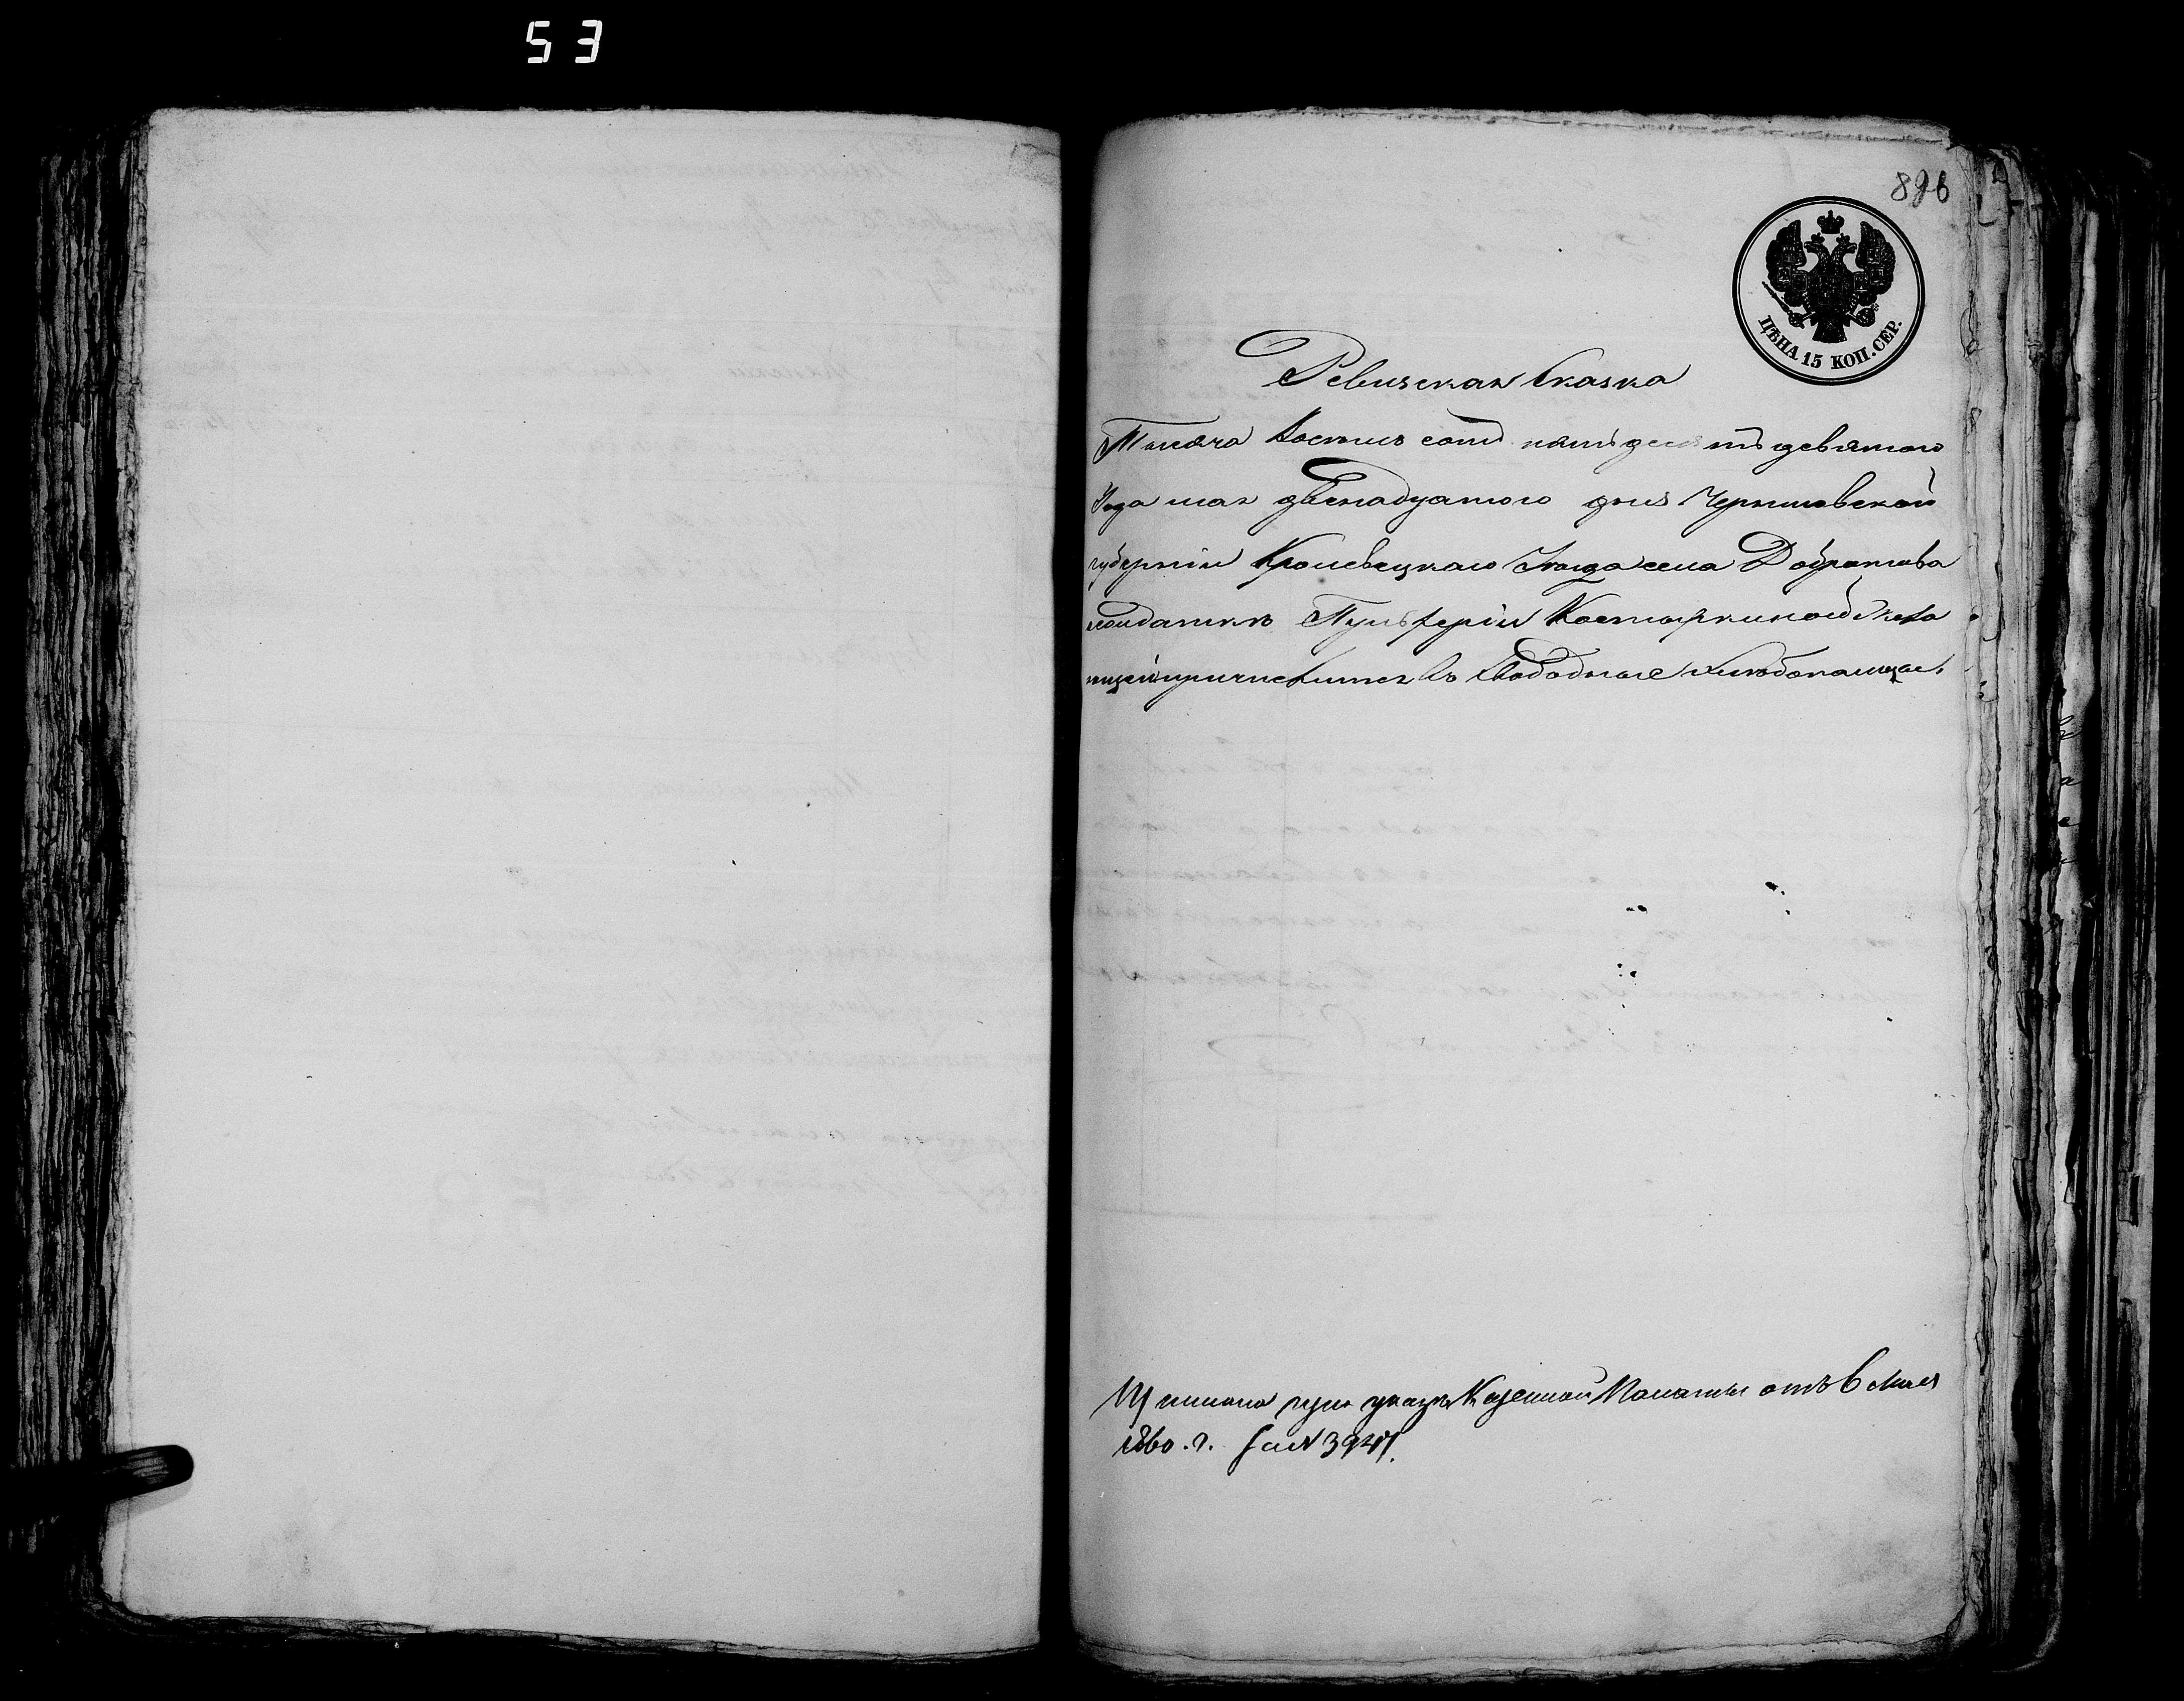 53
896
ЦѢНА 15 КОП. СЕР.
Ревизская Сказка
Тысяча восемь сотъ пятьдесятъ девятого
Года мая двенадцатого дня Черниговской
губерніи Кролевецкаго Уезда села Добротова
солдатки Пульхеріи Костыркиной жела
ющей причислится въ Свободные хлебопашцы
при указѣ Казенной Палаты отъ 6 Мая
1860. г. за N 3947.